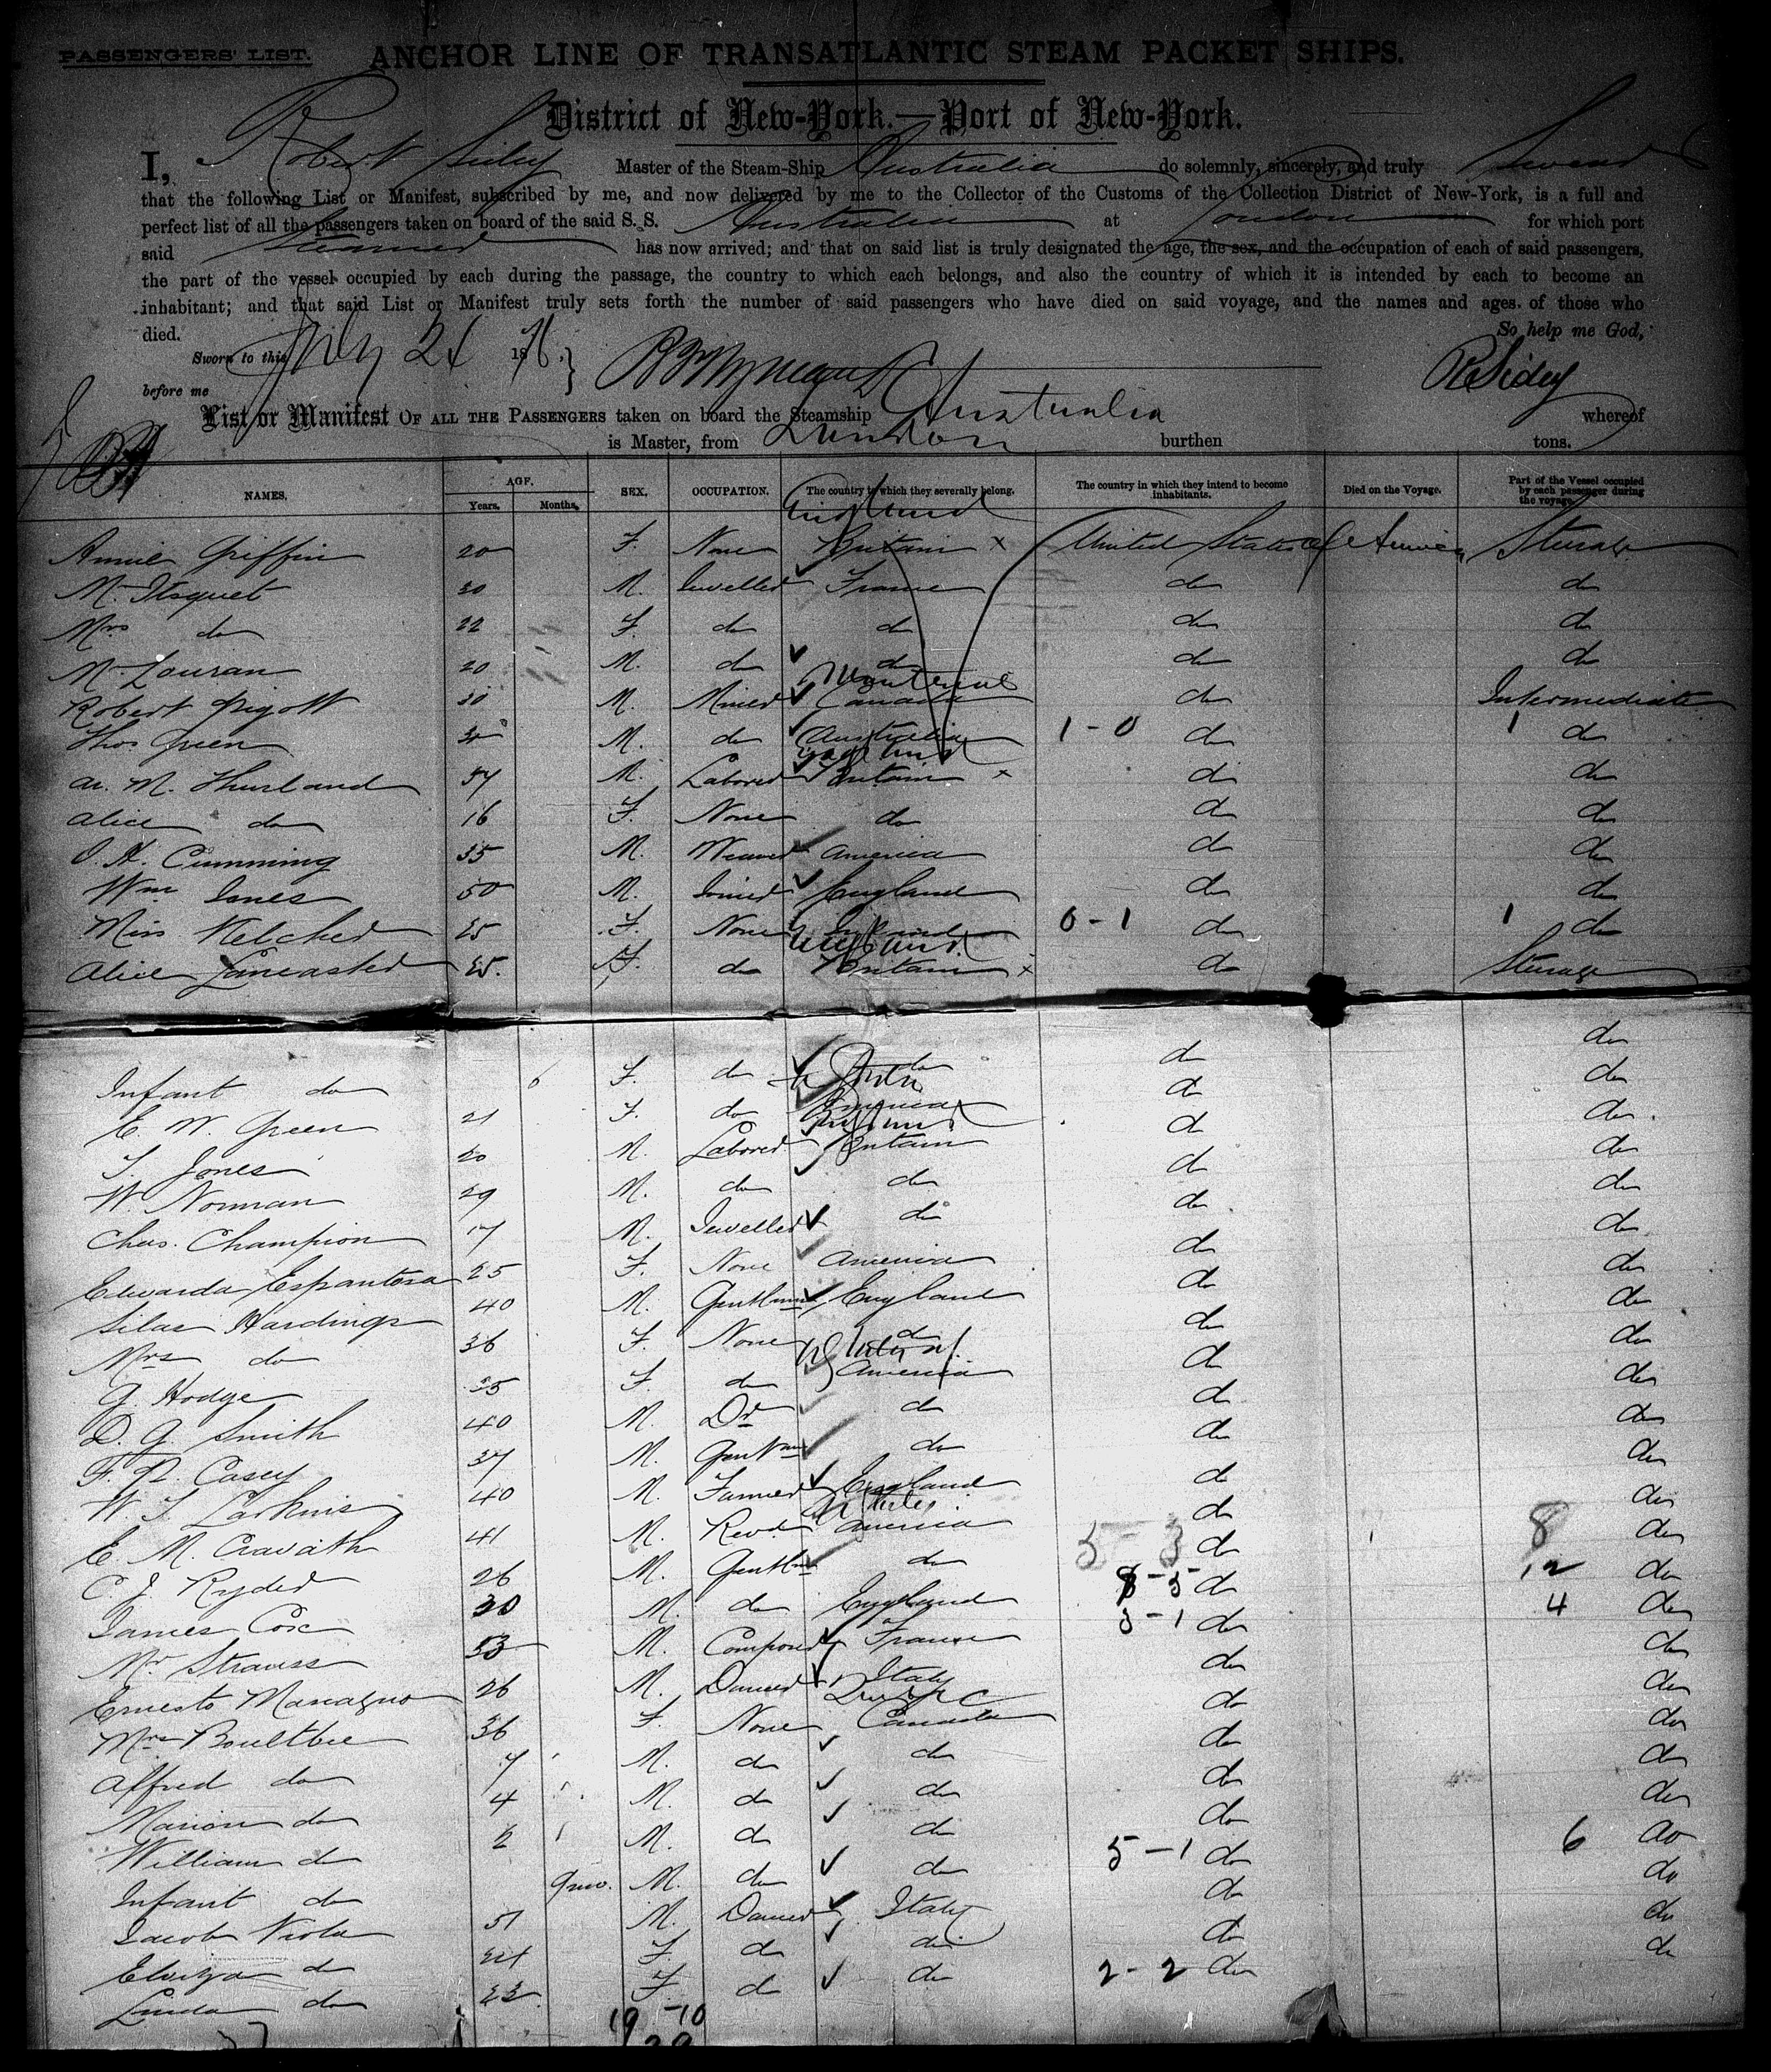 PASSENGERS' LIST. ANCHOR LINE OF TRANSATLANTIC STEAM PACKET SHIPS.
District of New-York.—Port of New-York.
I, Robert Sidey Master of the Steam-Ship Australia do solemnly, sincerely, and truly Swear
that the following List or Manifest, subscribed by me, and now delivered by me to the Collector of the Customs of the Collection District of New-York, is a full and
perfect list of all the passengers taken on board of the said S. S. Australia at London for which port
said Steamer has now arrived; and that on said list is truly designated the age, the sex, and the occupation of each of said passengers,
the part of the vessel occupied by each during the passage, the country to which each belongs, and also the country of which it is intended by each to become an
inhabitant; and that said List or Manifest truly sets forth the number of said passengers who have died on said voyage, and the names and ages of those who
died. So help me God,
Sworn to this July 21 1876. R Sidey
before me
List or Manifest OF ALL THE PASSENGERS taken on board the Steamship Australia whereof
is Master, from London burthen tons.
NAMES. AGE. Years. Months. SEX. OCCUPATION. The country to which they severally belong. The country in which they intend to become inhabitants. Died on the Voyage. Part of the Vessel occupied by each passenger during the voyage.
England
Annie Griffin 20 F. None Britain x United States of America Steerage
Mr 20 M. Jeweller France do do
Mrs do 22 F. do do do do
Mr Louran 20 M. do do do do
Montreal
Robert Pigott 30 M. Miner Canada do Intermediate
Thos Green M. do Australia 1-0 do 1 do
England
M. Thurland 57 M. Laborer Britain x do do
Alice do 16 F. None do do do
Cumming 35 M. Weaver America do do
Wm Jones 50 M. Joiner England do do
Miss Kelcher 25 F. None Ireland 0-1 do 1 do
England
Alice Lancaster 25. F. do Britain x do Steerage
Infant do 6 F. do do do do
E. W. Green 21 F. do America do do
England
T. Jones 20 M. Laborer Britain do do
W. Norman 29 M. do do do do
Chas. Champion 17 M. Jeweller do do do
Edwarda Espantosa 25 F. None America do do
Silas Hardings 40 M. Gentlman England do do
Mrs do 36 F. None do do do
G. Hodge 35 F. do America do do
D. G. Smith 40 M. Dr do do do
F. R. Casey 37 M. Gentmn do do do
W. T. Larkins 40 M. Farmer England do do
E. M. Cravath 41 M. Revd America do do
C. J. Ryder 26 M. Gentlmn do 5-3 do 8 do
James Cox 30 M. do England 8-5 do 12 do
Mr Strauss 53 M. Composer France 3-1 do 4 do
Ernesto 26 M. Dancer Italy do do
Quebec
Mrs Boultbee 36 F. None Canada do do
Alfred do 7 M. do do do do
Marion do 4 M. do do do do
William do 2 M. do do do do
Infant do 9mo. M. do do 5-1 do 6 do
Jacob Viola 51 M. Dancer Italy do do
Elviza do 24 F. do do do do
Linda do 23. F. do do 2-2 do do
19-10
29